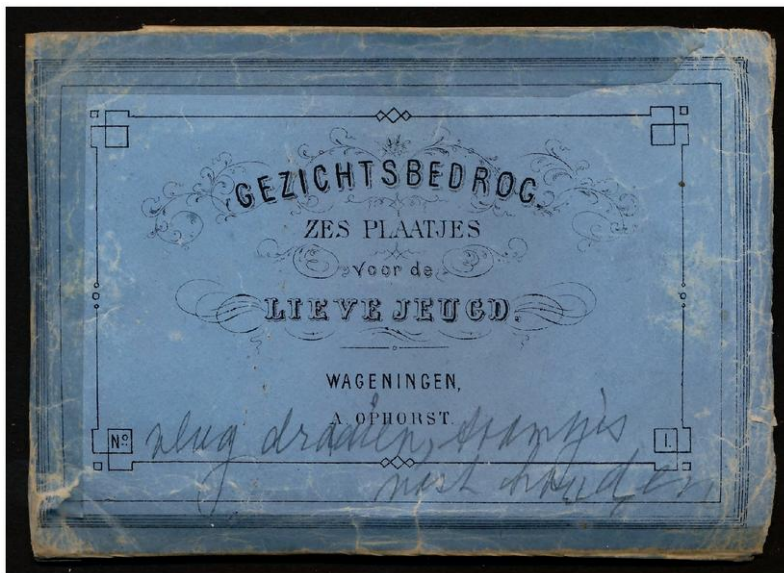 GEZICHTSBEDROG.
ZES PLAATJES
voor de
LIEVE JEUGD.
WAGENINGEN,
A. OPHORST.
vlug draaien,
vast houden
No. 1.